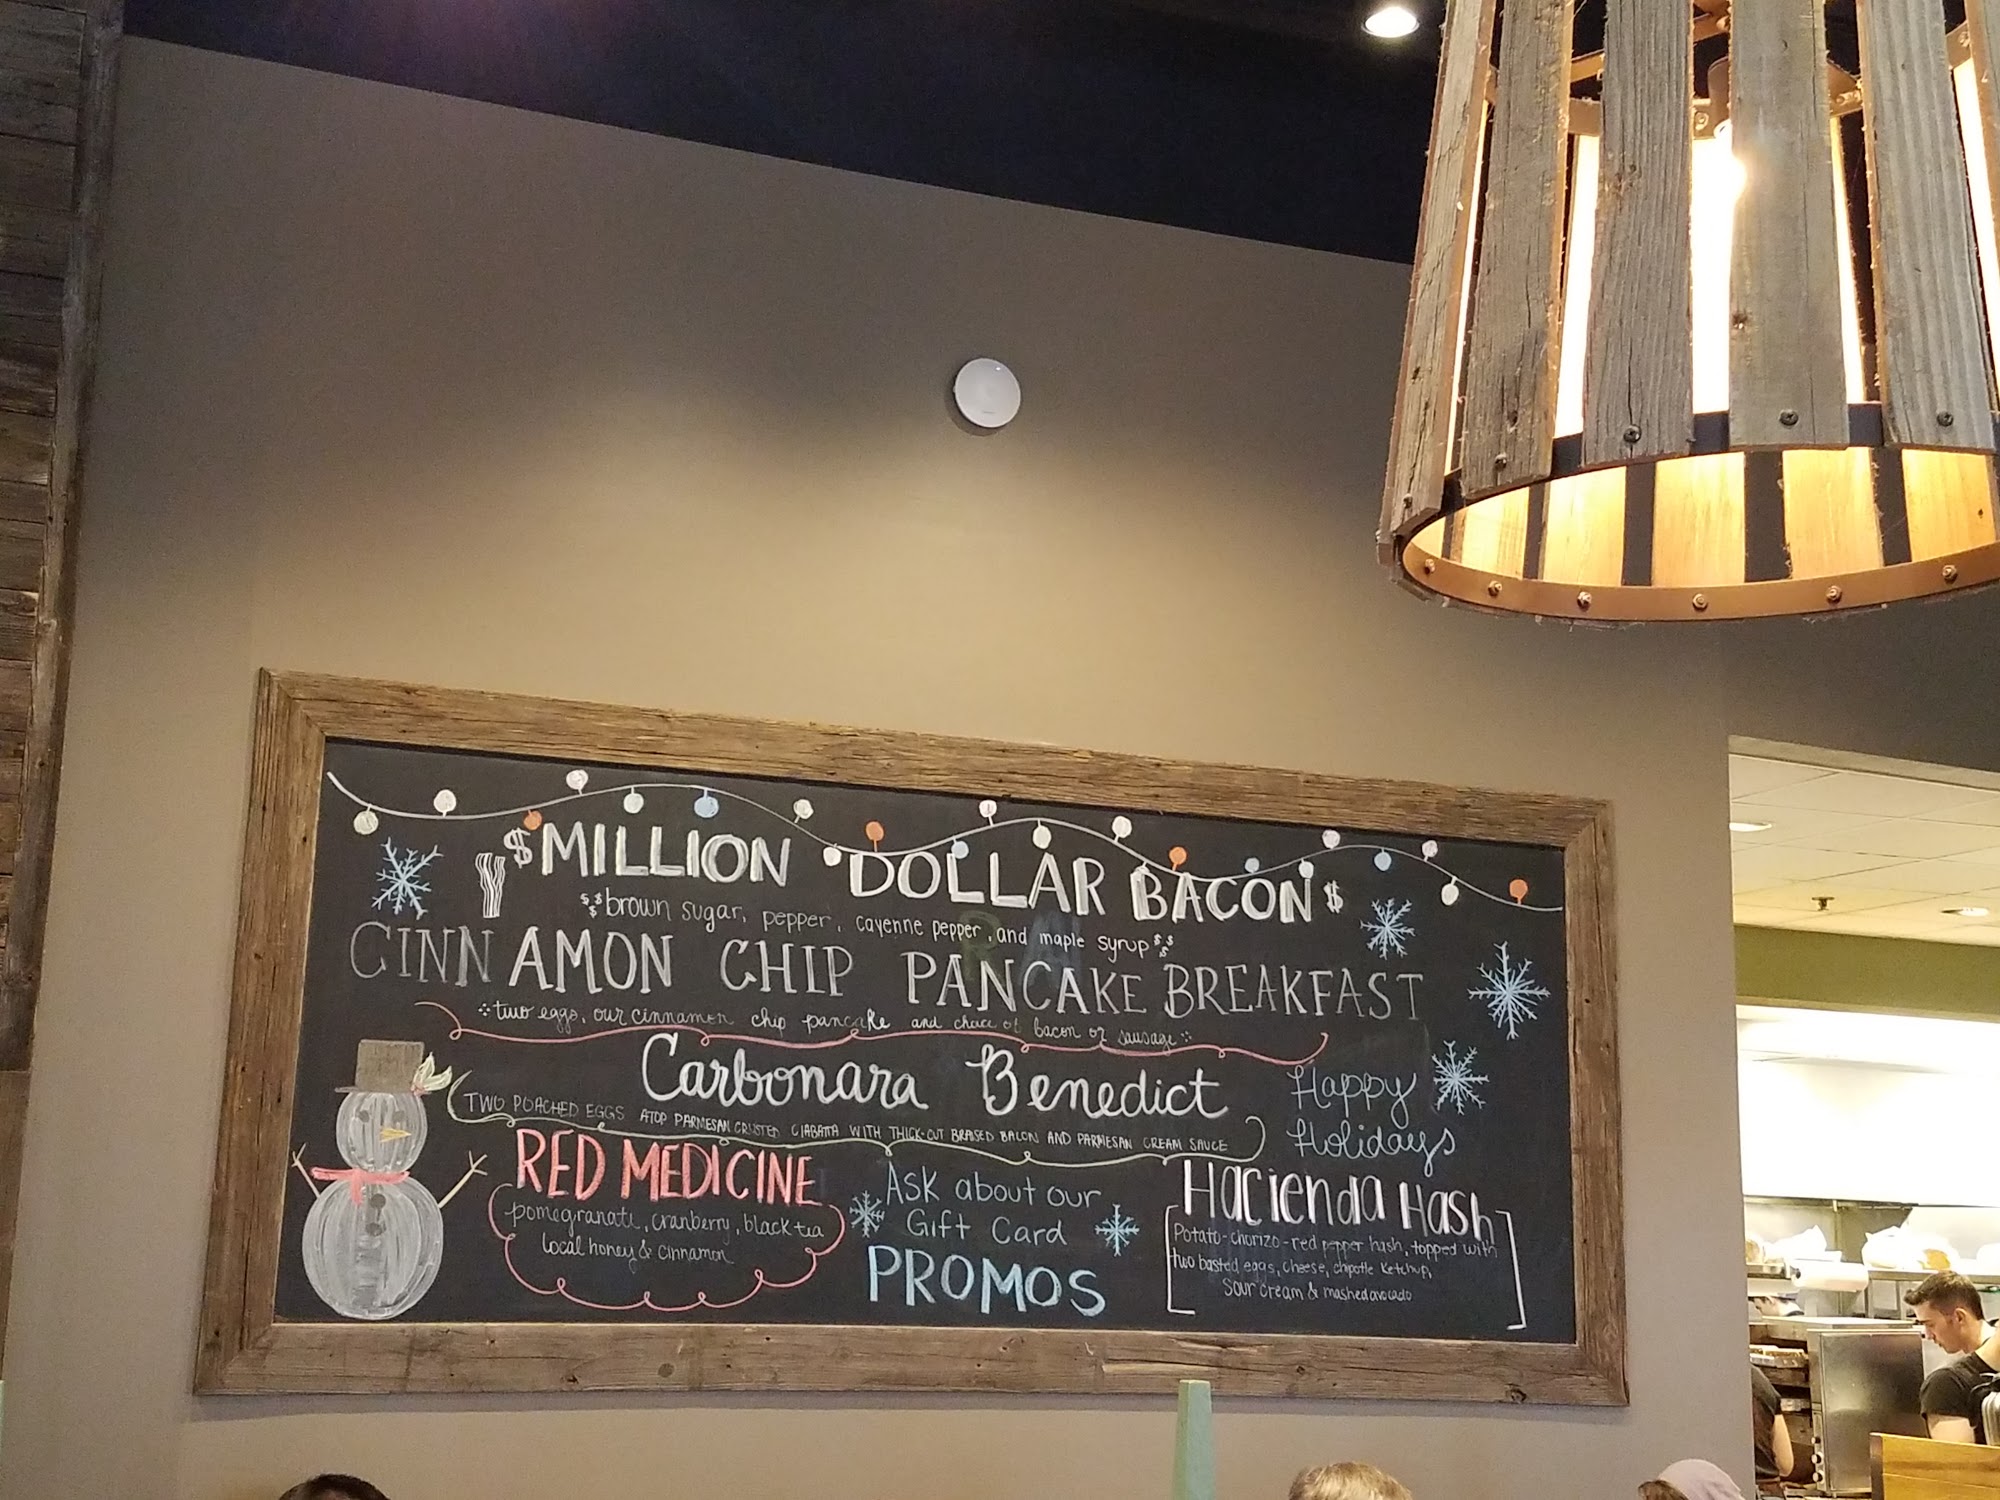 $ MILLION DOLLAR BACON $
$$$ brown sugar, pepper, cayenne pepper, and maple syrup $$$
CINNAMON CHIP PANCAKE BREAKFAST
two eggs, our cinnamon chip pancake and choice of bacon or sausage
Carbonara Benedict
TWO POACHED EGGS ATOP PARMESAN CRUSTED CIABATTA WITH THICK-CUT BRAISED BACON AND PARMESAN CREAM SAUCE
Happy
Holidays
RED MEDICINE
pomegranate, cranberry, black tea
local honey & cinnamon
Ask about our
Gift Card
PROMOS
Hacienda Hash
Potato-chorizo-red pepper hash, topped with
two basted eggs, cheese, chipotle ketchup,
sour cream & mashed avocado